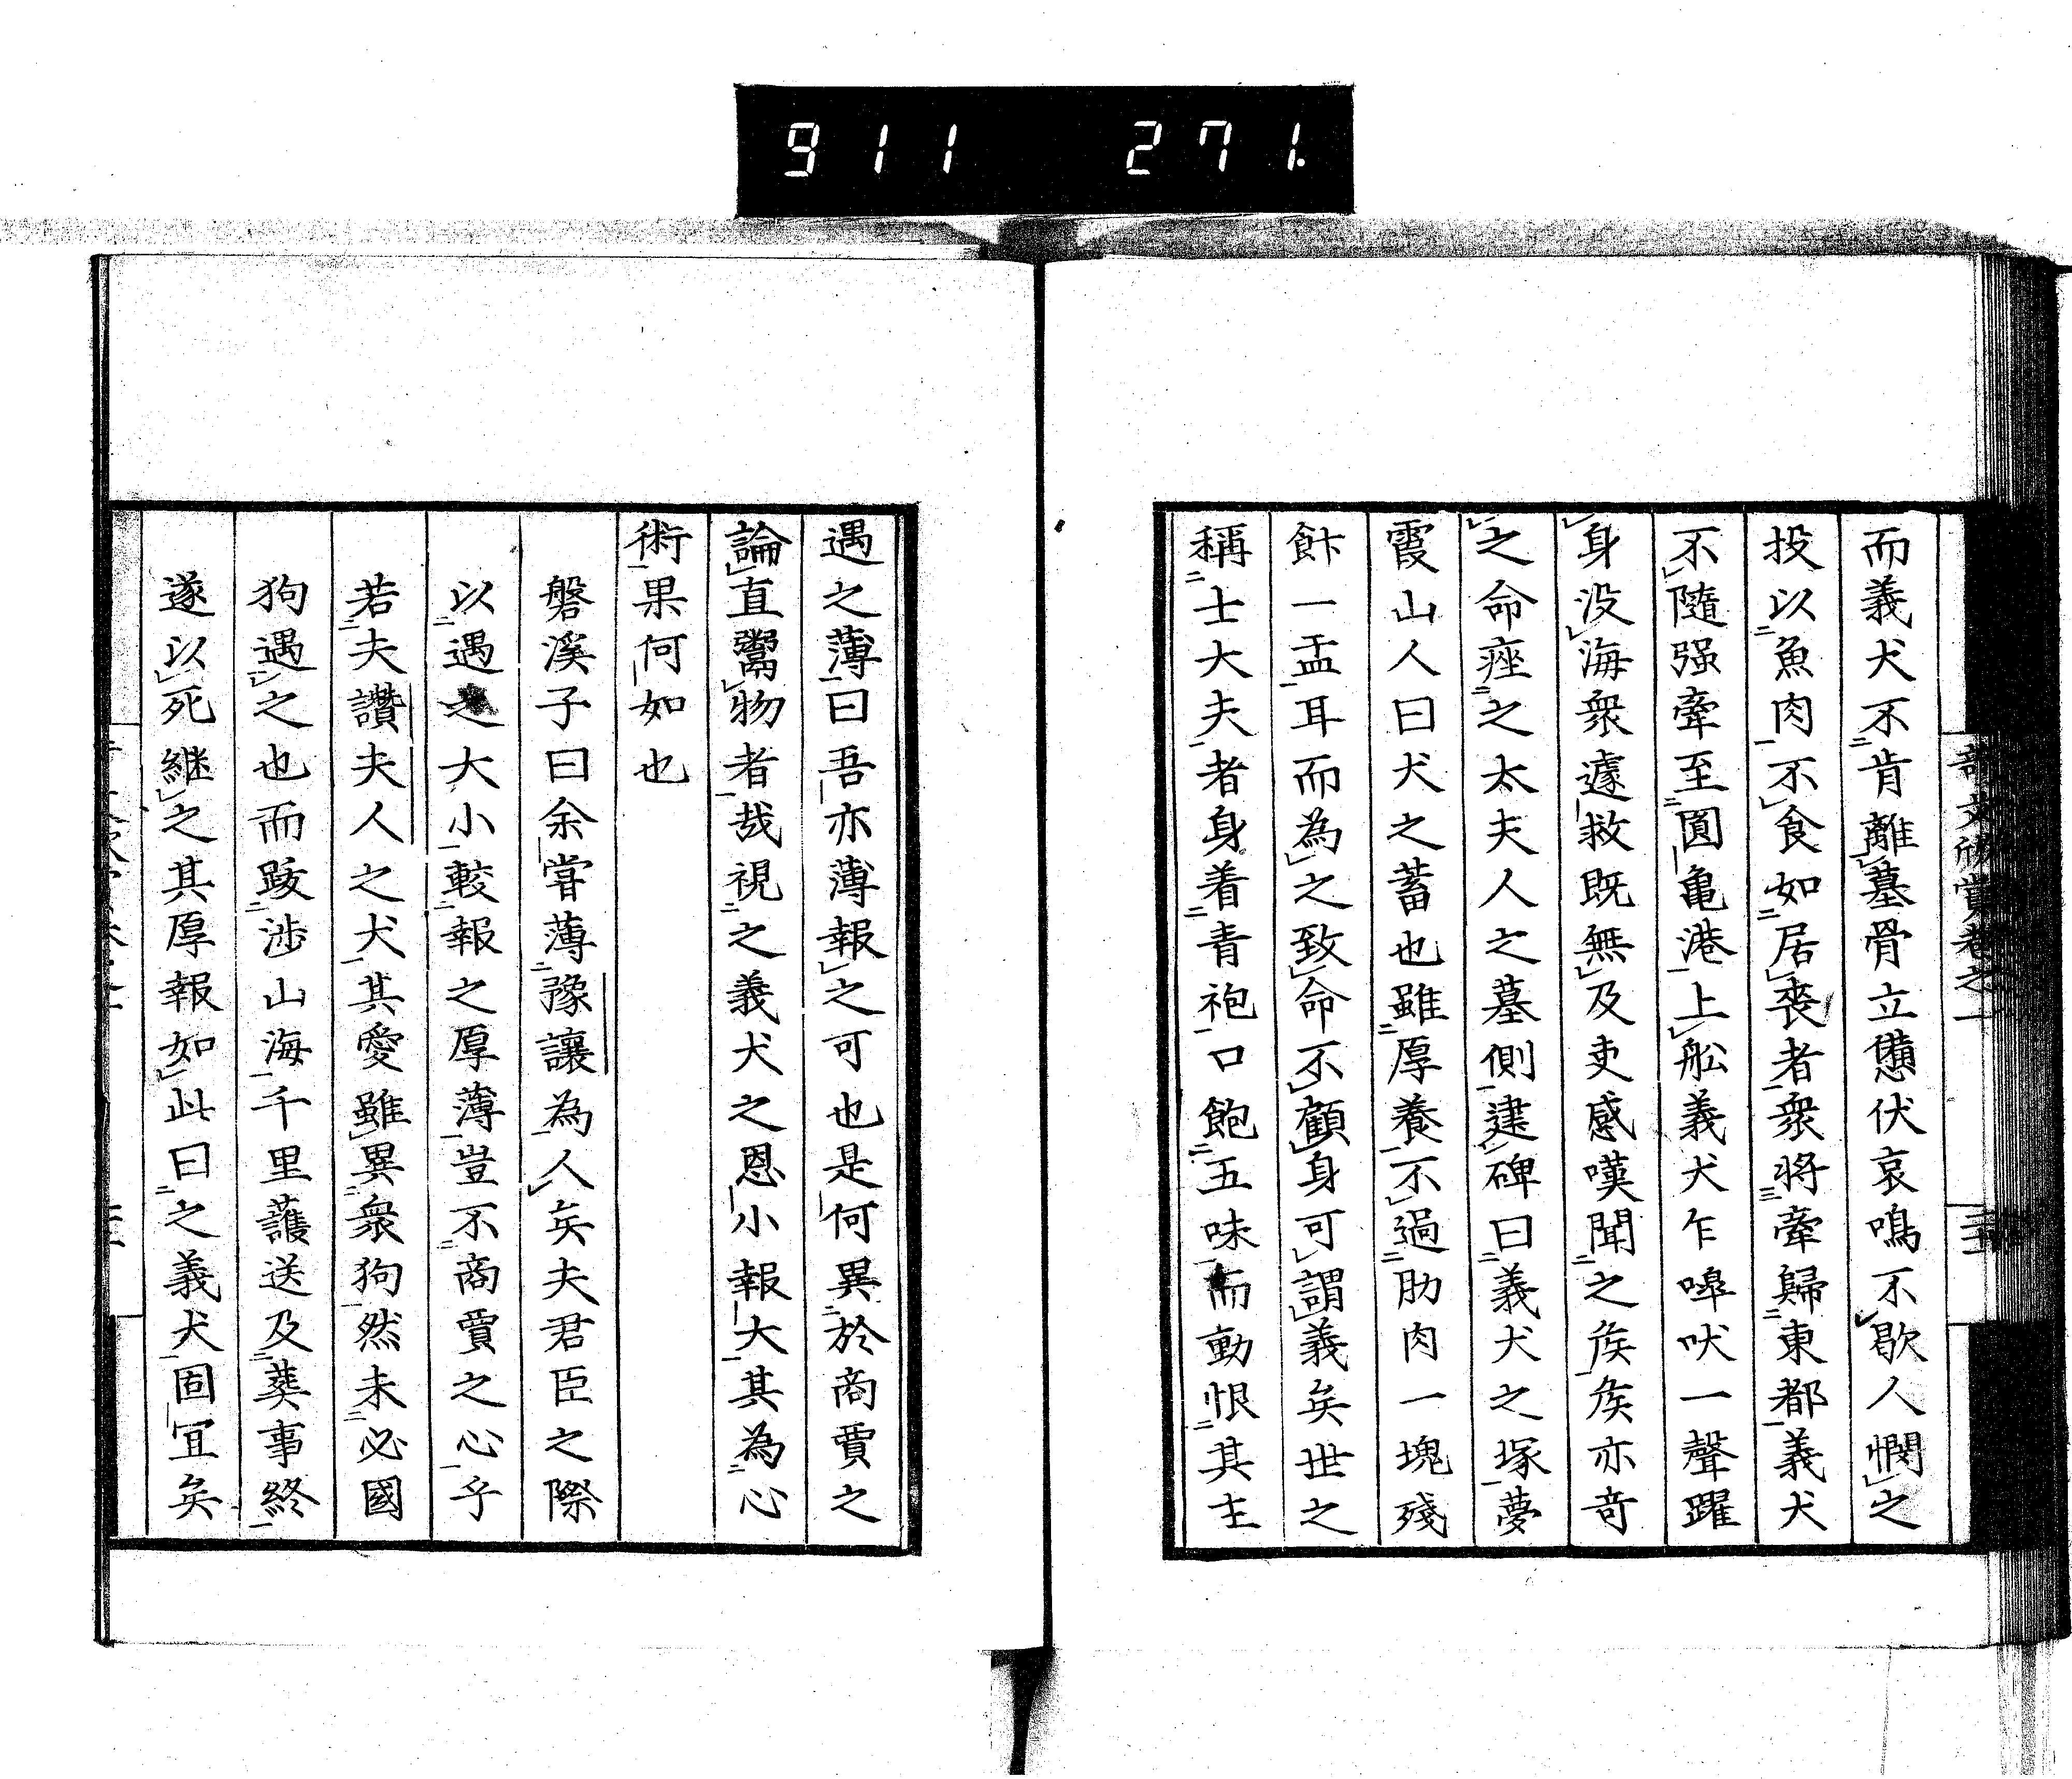 911 271.
而義犬不肯離墓骨立憊伏哀鳴不歇人憫之
投以魚肉不食如居喪者衆將牽歸東都義犬
不隨强牽至圓亀港上舩義犬乍嘷吠一聲躍
身没海衆遽救既無及吏感嘆聞之矦矦亦竒
之命瘞之太夫人之墓側建碑曰義犬之塚夢
霞山人曰犬之蓄也雖厚養不過肋肉一塊殘
飰一盂耳而為之致命不顧身可謂義矣世之
稱士大夫者身着青袍口飽五味而動恨其主
遇之薄曰吾亦薄報之可也是何異於商賈之
論直鬻物者哉視之義犬之恩小報大其為心
術果何如也
磐溪子曰余嘗薄豫讓為人矣夫君臣之際
以遇之大小較報之厚薄豈不商賈之心乎
若夫讚夫人之犬其愛雖異衆狗然未必國
狗遇之也而跋涉山海千里護送及葬事終
遂以死継之其厚報如此曰之義犬固冝矣